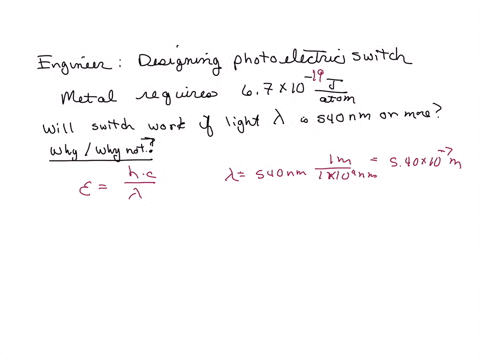 Engineer: Designing photoelectric switch
Metal requires 6.7 × 10⁻¹⁹ J/atom
Will switch work if light λ is 540 nm or more?
Why / Why not?
ε = h·c/λ
λ = 540 nm 1m/1×10⁹ nm = 5.40×10⁻⁷ m